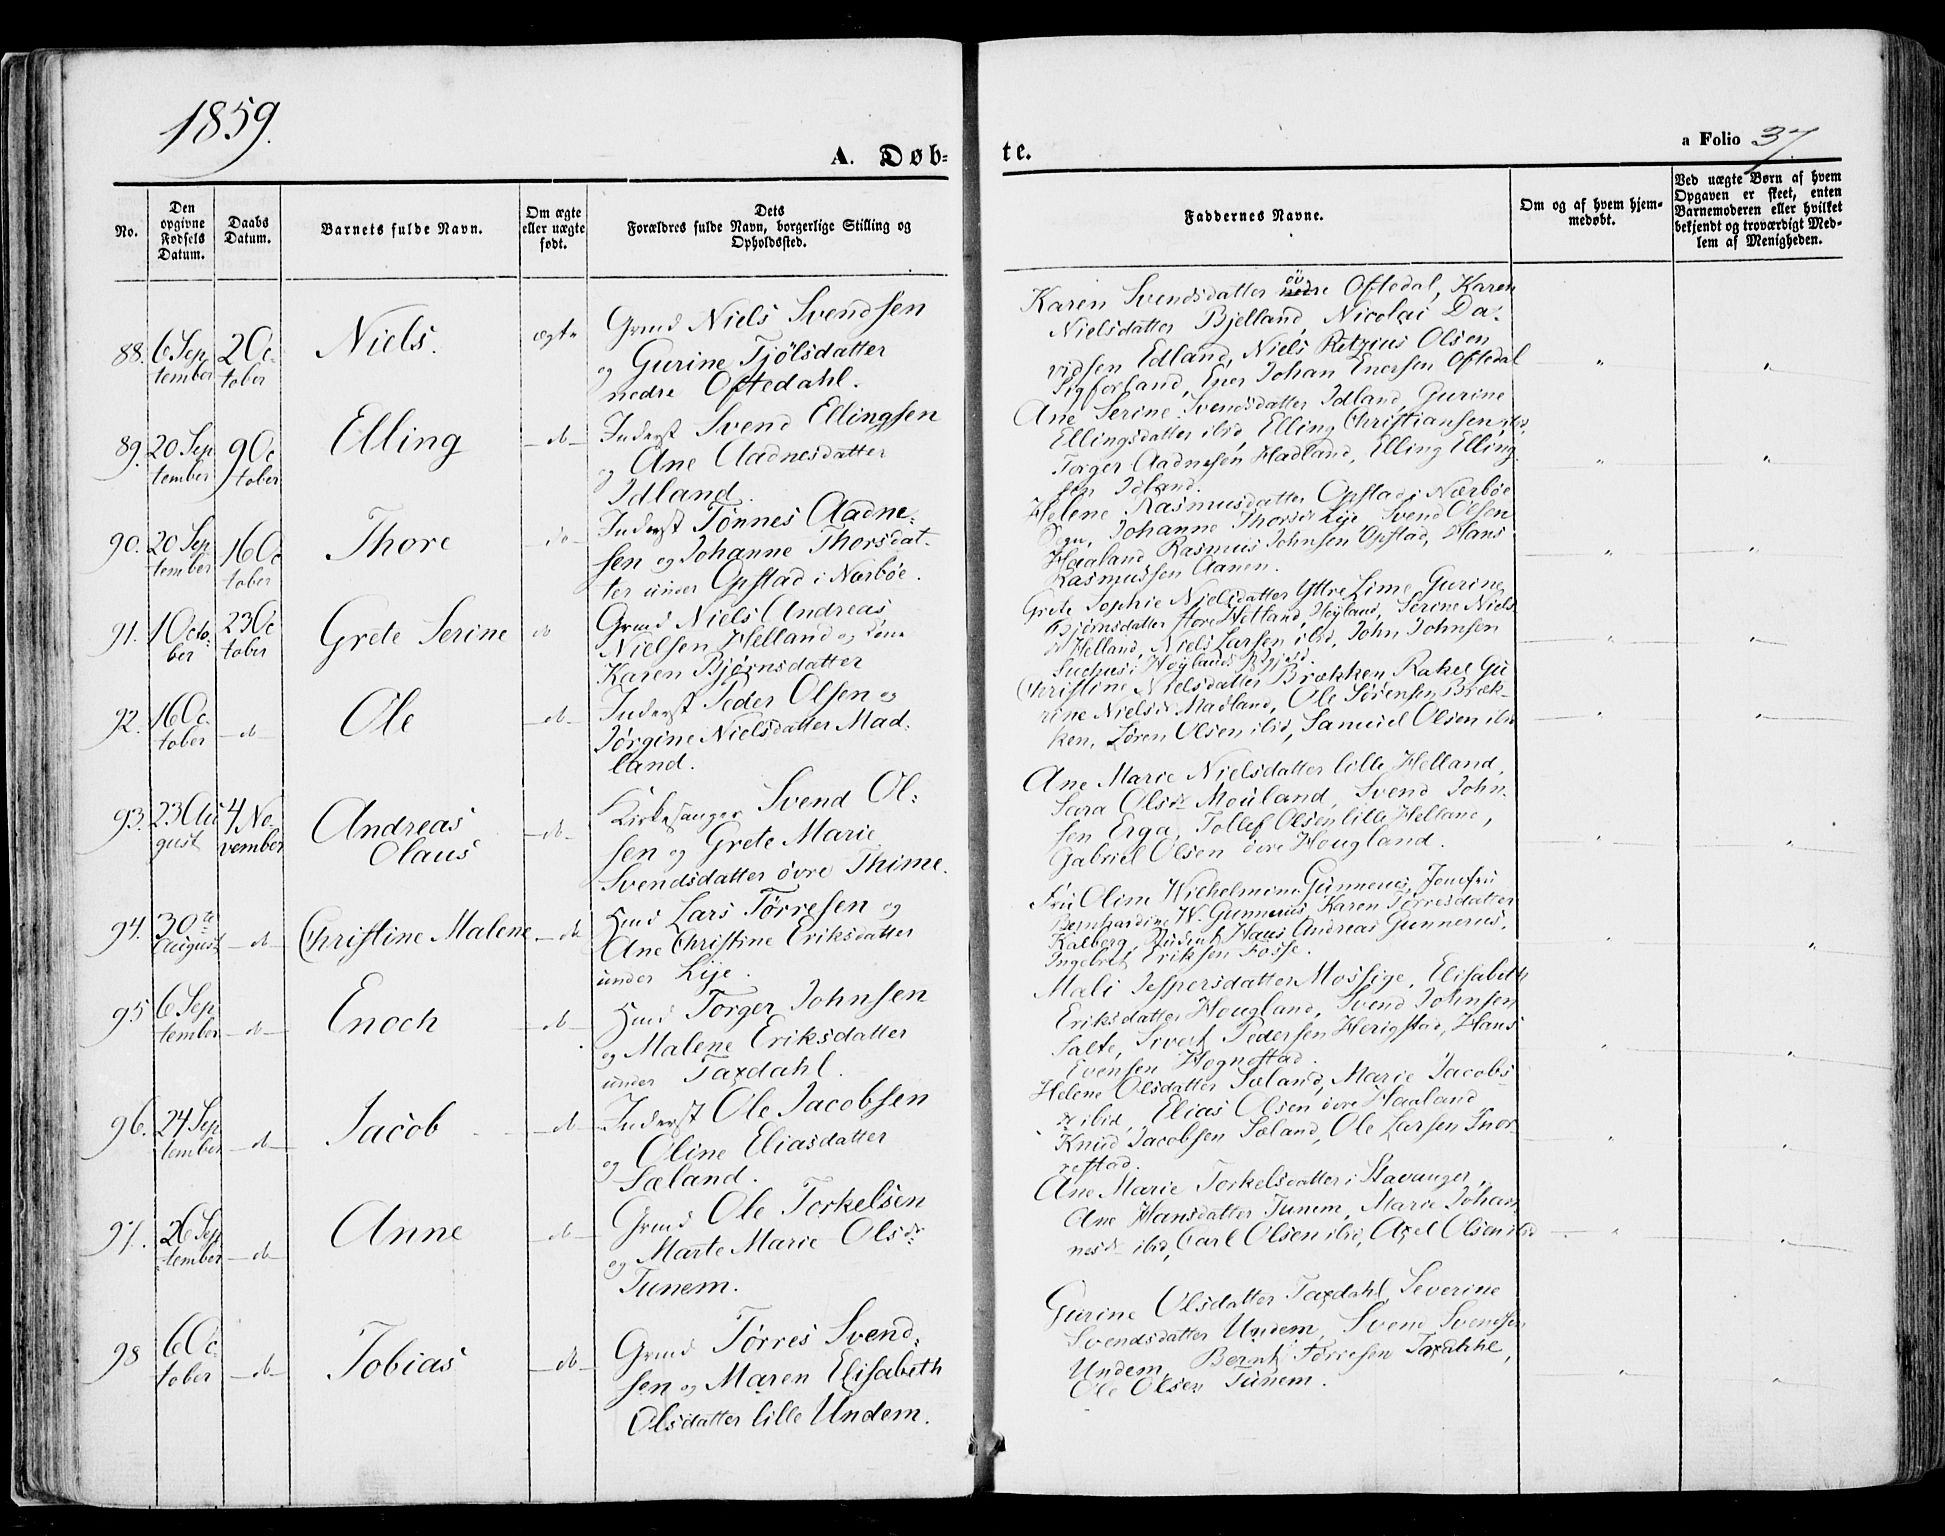 1859.
A. Døb-
te.
a Folio 37
No.
Den
opgivne
Fødsels
Datum.
Daabs
Datum.
Barnets fulde Navn.
Om ægte
eller uægte
født.
Dets
Forældres fulde Navn, borgerlige Stilling og
Opholdssted.
Faddernes Navne.
Om og af hvem hjem-
medøbt.
Ved uægte Børn af hvem
Opgaven er skeet, enten
Barnemoderen eller hvilket
bekjendt og troværdigt Med-
lem af Menigheden.
88.
6 Sep
tember
2 Oc-
tober
Niels.
ægte
Grmd Niels Svendsen
og Gurine Tjölsdatter
nedre Oftedahl.
Karen Svendsdatter öv nedre Oftedal, Karen
Nielsdatter Bjelland, Nicolai Da-
vidsen Edland, Niels Retzius Olsen
Sigforland, Ener Johan Enersen Oftedal
89.
20 Sep
tember
9 Oc
tober
Elling
do
Inderst Svend Ellingsen
og Ane Aadnesdatter
Idland.
Ane Serine Svendsdatter Idland, Gurine
Ellingsdatter ibid, Elling Christiansen ibid,
Torger Aadnesen Hadland, Elling Elling
sen Idland.
90.
20 Sep
tember
16 Oc
tober
Thore
do
Inderst Tönnes Aadne-
sen og Johanne Thorsdat-
ter under Opstad i Nærböe.
Helene Rasmusdatter Opstad i Nærböe
Sogn, Johanne Thorsdr Lije, Svend Olsen
Haaland, Rasmus Johnsen Opstad, Hans
Rasmussen Aanen.
91.
1 Octo-
ber
23 Oc
tober
Grete Serine
do
Grmd Niels Andreas
Nielsen Helland og Kone
Karen Bjørnsdatter
Grete Sophie Nielsdatter Yttre Lime, Gurine
Bjørnsdatter store Hetland, Höyland, Serine Niels
dr Helland, Niels Larsen ibid, John Johnsen
92.
16 Oc
tober
do
Ole
do
Inderst Peder Olsen og
Jørgine Nielsdatter Mad-
land.
Christine Nielsdatter Brækken, Rakel Gu
rine Nielsdr Madland, Ole Sørensen Bræk-
ken, Sören Olsen ibid, Samuel Olsen ibid
93.
23 Au
gust
4 No-
vember
Andreas
Olaus
do
Kirkesanger Svend Ol-
sen og Grete Marie
Svendsdatter övre Thime.
Ane Marie Nielsdatter lille Helland,
Sara Olsdr Mouland, Svend John-
sen Erga, Tollef Olsen lille Helland,
Gabriel Olsen övre Hougland.
94.
30te
August
do
Christine Malene
do
Huusmd Lars Törresen og
Ane Christine Eriksdatter
under Lije.
Fru Oline Wilhelmine Gunnerus, Jomfru
Bernhardine W. Gunnerus, Karen Törresdatter
Kalberg, Student Hans Andreas Gunnerus,
Ingebret Eriksen Fosse.
95
6 Sep
tember
do
Enoch
do
Huusmd Torger Johnsen
og Malene Eriksdatter
under Taxdahl.
Mali Jespersdatter Mossige, Elisabeth
Eriksdatter Hougland, Svend Johnsen
Salte, Sivert Pedersen Herigstad, Hans
Evensen Hognestad.
96.
24 Sep
tember
do
Jacob
do
Inderst Ole Jacobsen
og Oline Eliasdatter
Sæland.
Helene Olsdatter Sæland, Marie Jacobs-
dr ibid, Elias Olsen övre Haaland
Knud Jacobsen Sæland, Ole Larsen Tnor-
restad.
97.
26 Sep
tember
do
Anne
do
Grmd Ole Torkelsen
og Marte Marie Olsdr
Tunem.
Ane Marie Torkelsdatter i Stavanger,
Ane Hansdatter Tunem, Marie Johan
nesdr ibid, Carl Olsen ibid, Axel Olsen ibid
98
6 Oc-
tober
do
Tobias
do
Grmd Törres Svend-
sen og Maren Elisabeth
Olsdatter lille Undem.
Gurine Olsdatter Taxdahl, Severine
Svendsdatter Undem, Svend Svendsen
Undem, Bernt Törresen Taxdahl,
Ole Olsen Tunem.